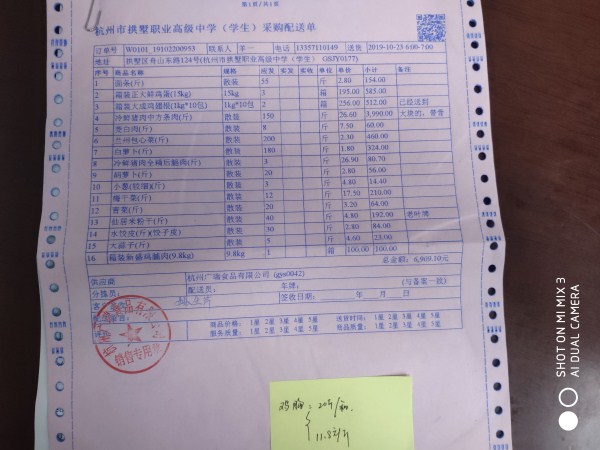 第1页/共1页
杭州市拱墅职业高级中学（学生）采购配送单
订单号 W0101_19102200953 联系人 羊一 电话 13357110149 送货 2019-10-23 6:00-7:00
地址 拱墅区舟山东路124号(杭州市拱墅职业高级中学（学生） GSJY0177)
序号 商品名称 规格 应发 实发 实收 单位 单价 小计 备注
1 面条(斤) 散装 55 斤 2.80 154.00
2 箱装正大鲜鸡蛋(15kg) 15kg 3 箱 195.00 585.00
3 箱装大成鸡腿根(1kg*10包) 1kg*10包 2 箱 256.00 512.00 已经送到
4 冷鲜猪肉中方条肉(斤) 散装 150 斤 26.60 3,990.00 大块的，带骨
5 茭白肉(斤) 散装 8 斤 7.50 60.00
6 兰州包心菜(斤) 散装 200 斤 2.30 460.00
7 白萝卜(斤) 散装 180 斤 1.80 324.00
8 冷鲜猪肉全精后腿肉(斤) 散装 3 斤 26.90 80.70
9 胡萝卜(斤) 散装 20 斤 2.80 56.00
10 小葱(较细)(斤) 散装 3 斤 4.80 14.40
11 梅干菜(斤) 散装 12 斤 17.50 210.00
12 青菜(斤) 散装 20 斤 3.20 64.00
13 散装 40 斤 4.80 192.00
14 水饺皮(斤)(饺子皮) 散装 30 斤 2.80 84.00
15 大蒜子(斤) 散装 5 斤 4.60 23.00
16 箱装新盛鸡腿肉(9.8kg) 9.8kg 1 箱 100.00 100.00
总金额: 6,909.10元
供应商 杭州广瑞食品有限公司 (gys0042)
分拣员: 配送员: 车牌: (与备案一致)
签收日期: 年 月 日
商品价格: 1星 2星 3星 4星 5星 送货时间: 1星 2星 3星 4星 5星
服务质量: 1星 2星 3星 4星 5星 商品质量: 1星 2星 3星 4星 5星
销售专用章
鸡胸: 20斤/箱.
11.8元/斤
SHOT ON MI MIX 3
AI DUAL CAMERA